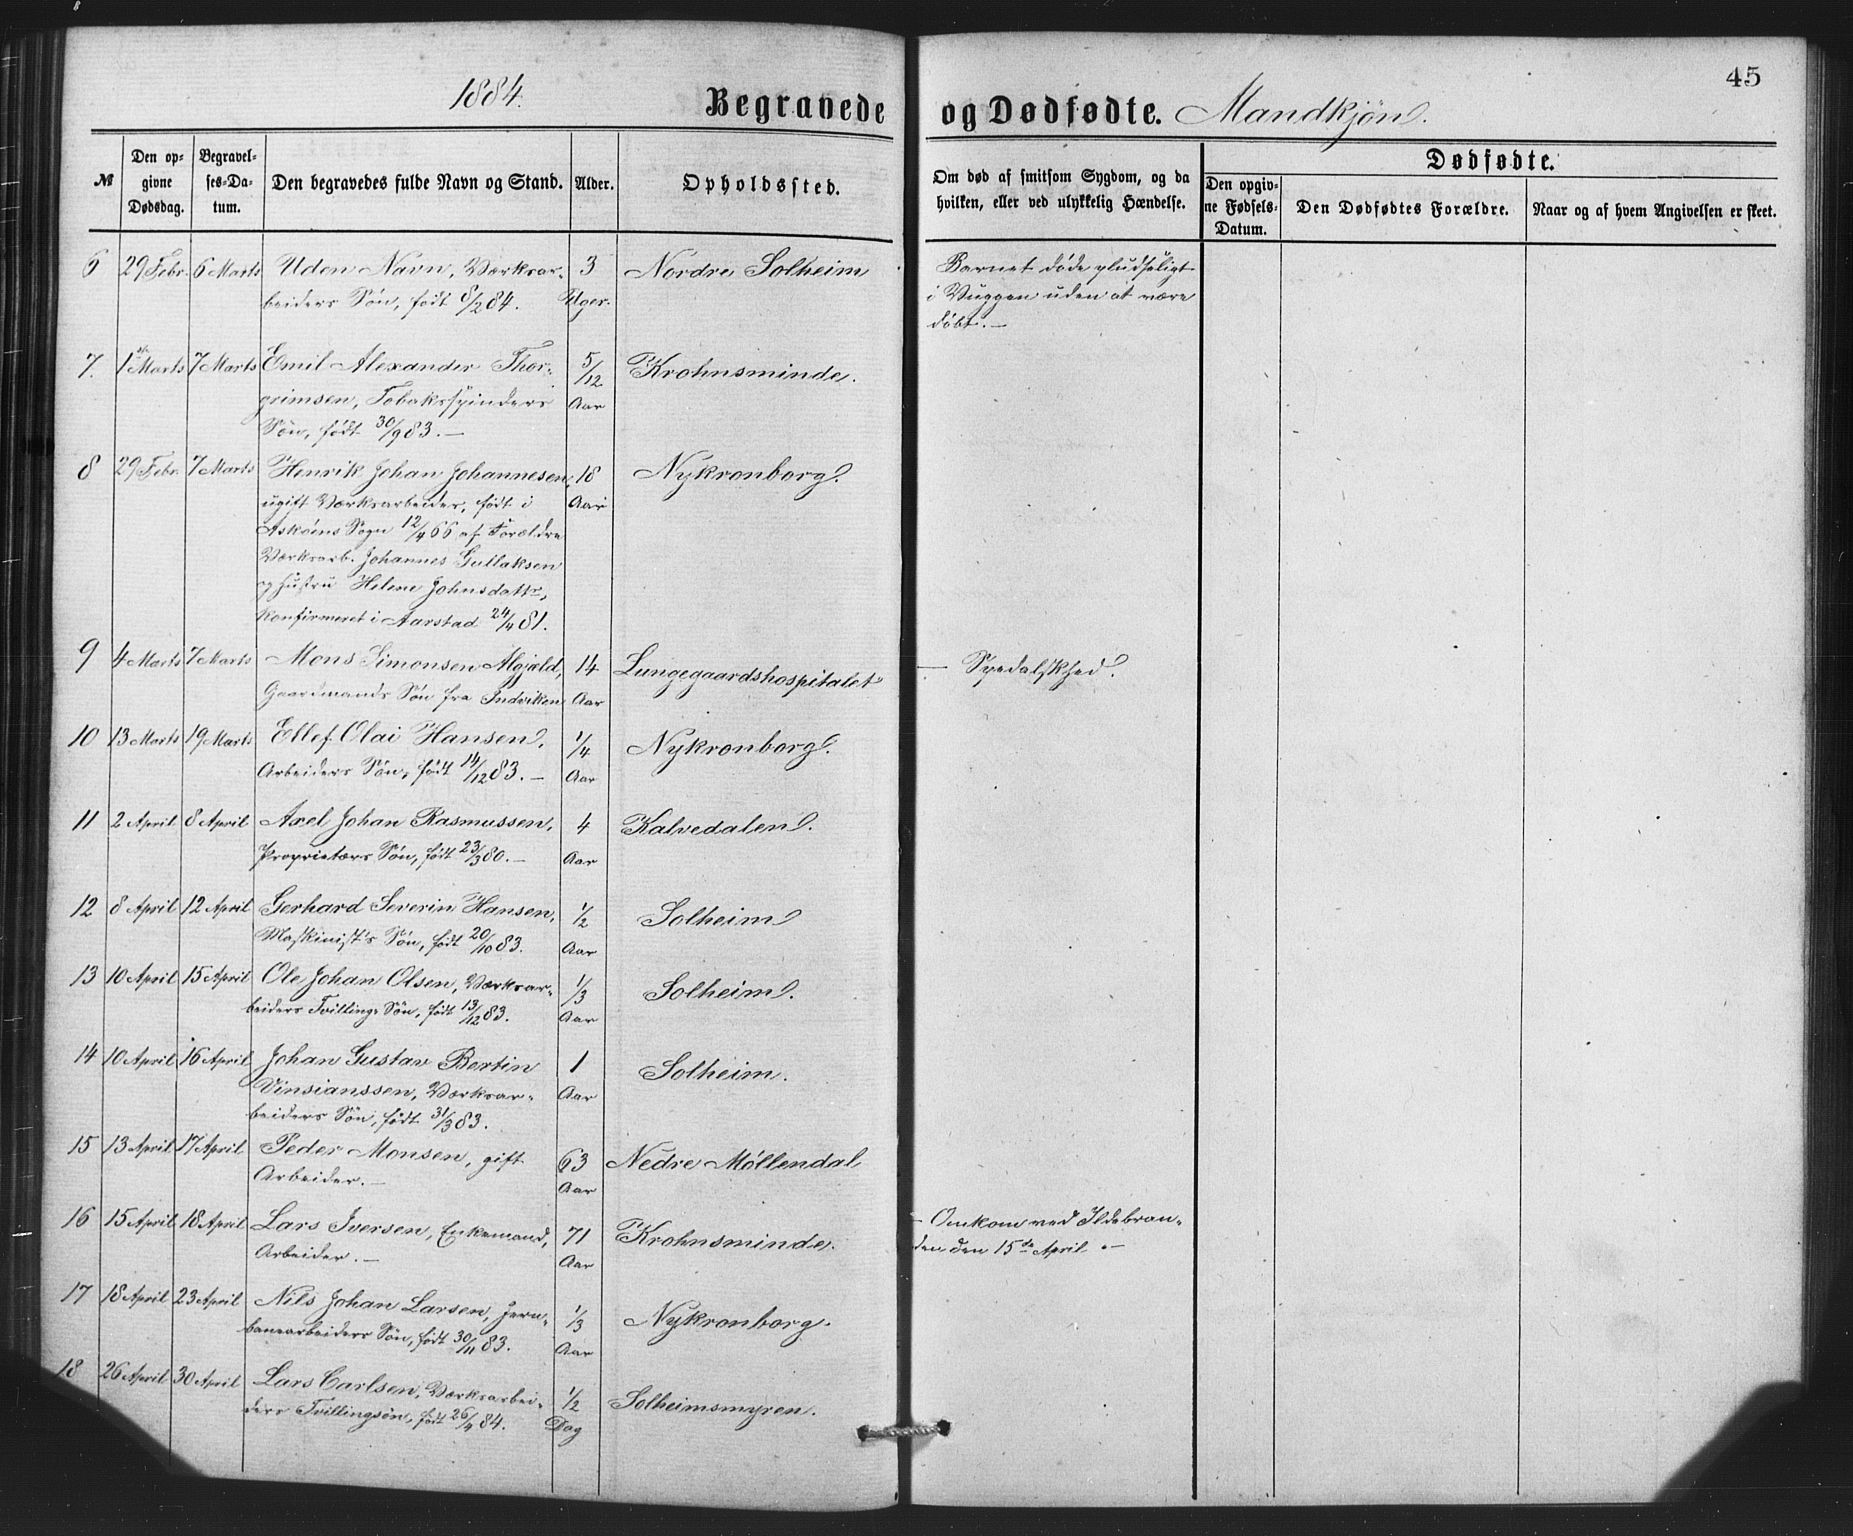 45
1884.
Begravede og Dødfødte. Mandkjøn.
№
Den opgivne Dødsdag.
Begravelses-Datum.
Den begravedes fulde Navn og Stand.
Alder.
Opholdssted.
Om død af smitsom Sygdom, og da hvilken, eller ved ulykkelig Hændelse.
Dødfødte.
Den opgivne Fødsels-Datum.
Den Dødfødtes Forældre.
Naar og af hvem Angivelsen er skeet.
6 29 Febr. 6 Marts Uden Navn, Værksar- 3 Nordre Solheim Barnet døde pludseligt
beiders Søn, født 8/2 84. Uger. i Vuggen uden at være
døbt. —
7. 1ste Marts 7 Marts Emil Alexander Thor- 5/12 Krohnsminde.
grimsen, Tobaksspinders Aar
Søn, født 30/9 83. —
8 29 Febr. 7 Marts Henrik Johan Johannesen, 18 Nykronborg.
ugift Værksarbeider, født i Aar
Askøens Sogn 12/4 66 af Forældre
Værksarb. Johannes Gullaksen
og Hustru Helene Johnsdattr,
konfirmeret i Aarstad 24/4 81.
9 4 Marts 7 Marts Mons Simonsen Algjæld, 14 Lungegaardshospitalet — Spedalskhed.
Gaardmands Søn fra Indviken Aar
10 13 Marts 19 Marts Ellef Olai Hansen, 1/4 Nykronborg.
Arbeiders Søn, født 14/12 83. — Aar
11 2 April 8 April Axel Johan Rasmussen, 4 Kalvedalen.
Proprietærs Søn, født 23/3 80. — Aar
12 8 April 12 April Gerhard Severin Hansen, 1/2 Solheim
Maskinist's Søn, født 20/10 83. Aar
13 10 April 15 April Ole Johan Olsen, Værksar- 1/3 Solheim.
beiders Tvilling-Søn, født 13/12 83. Aar
14 10 April 16 April Johan Gustav Bertin 1 Solheim.
Vinsianssen, Værksar- Aar
beiders Søn, født 31/3 83.
15 13 April 17 April Peder Monsen, gift 63 Nedre Møllendal
Arbeider. — Aar
16 15 April 18 April Lars Iversen, Enkemand, 71 Krohnsminde. — Omkom ved Ildebran-
Arbeider. — Aar den den 15de April. —
17 18 April 23 April Nils Johan Larsen, Jern- 1/3 Nykronborg.
banearbeiders Søn, født 30/11 83. Aar
18 26 April 30 April Lars Carlsen, Værksarbei- 1/2 Solheimsmyren.
ders Tvillingsøn, født 26/4 84. Dag